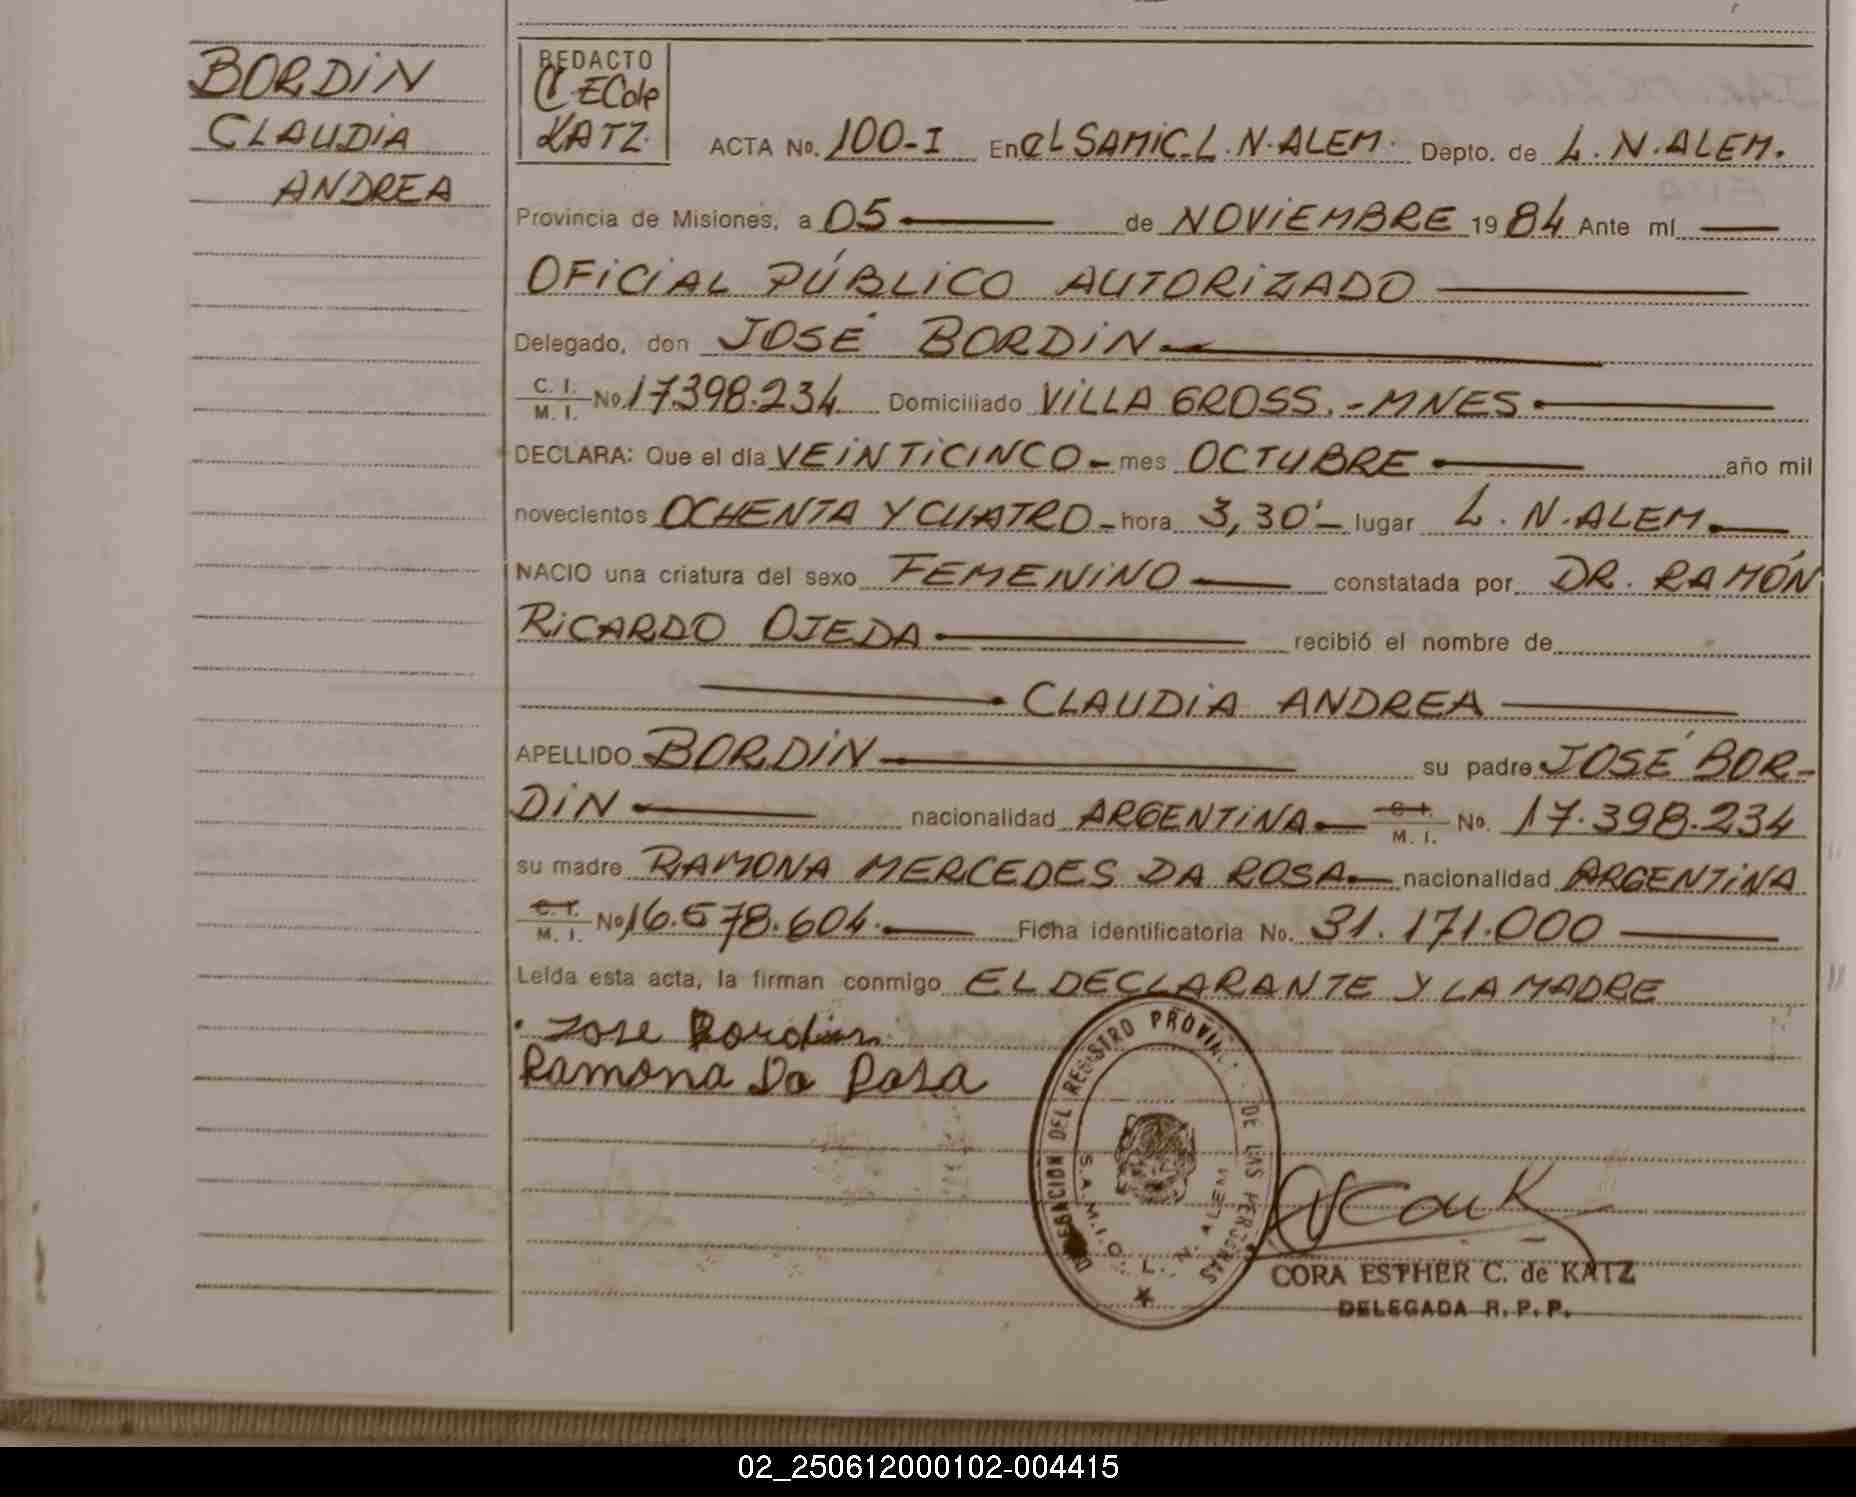 BORDIN
CLAUDIA
ANDREA
REDACTO
KATZ.
ACTA No. 100-I En eL SAMIC. L. N. ALEM. Depto. de L. N. ALEM.
Provincia de Misiones, a 05 de NOVIEMBRE 1984 Ante mí
OFICIAL PÚBLICO AUTORIZADO
Delegado, don JOSÉ BORDIN
C. I. M. I. No. 17.398.234 Domiciliado VILLA GROSS. - MNES
DECLARA: Que el día VEINTICINCO - mes OCTUBRE año mil
novecientos OCHENTA Y CUATRO - hora 3,30' - lugar L. N. ALEM.
NACIO una criatura del sexo FEMENINO constatada por DR. RAMÓN
RICARDO OJEDA recibió el nombre de
CLAUDIA ANDREA
APELLIDO BORDIN su padre JOSÉ BOR-
DIN nacionalidad ARGENTINA C. I. M. I. No. 17.398.234
su madre RAMONA MERCEDES DA ROSA nacionalidad ARGENTINA
C. I. M. I. No. 16.578.604. Ficha identificatoria No. 31.171.000
Leída esta acta, la firman conmigo EL DECLARANTE Y LA MADRE
Jose Bordin
Ramona Da Rosa
DELEGACION DEL REGISTRO PROVIN. DE LAS PERSONAS
S.A.M.I.C. L. N. ALEM
CORA ESTHER C. de KATZ
DELEGADA R. P. P.
02_250612000102-004415